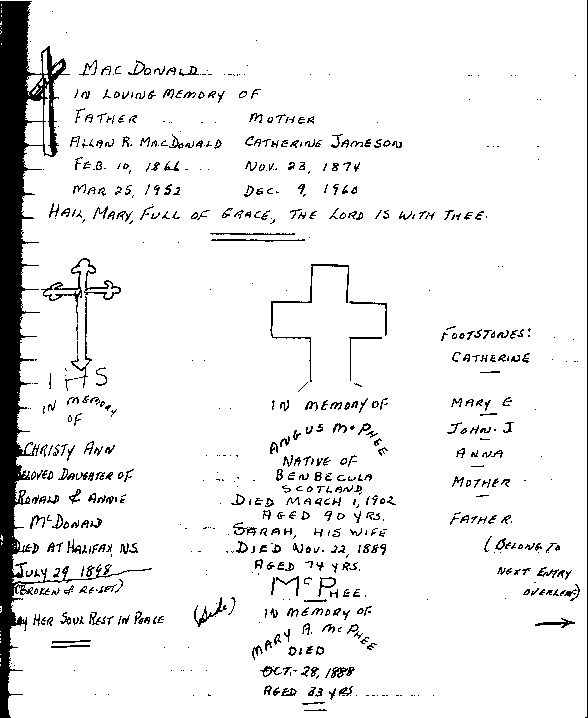 MACDONALD
IN LOVING MEMORY OF
FATHER MOTHER
ALLAN R. MACDONALD CATHERINE JAMESON
FEB. 10, 1866 NOV. 23, 1874
MAR 25, 1952 DEC. 9, 1960
HAIL, MARY, FULL OF GRACE, THE LORD IS WITH THEE.
IHS
IN MEMORY
OF
CHRISTY ANN
BELOVED DAUGHTER OF
RONALD & ANNIE
McDONALD
DIED AT HALIFAX N.S.
JULY 29
(BROKEN & RE-SET)
MAY HER SOUL REST IN PEACE
IN MEMORY OF
ANGUS McPHEE
NATIVE OF
BENBECULA
SCOTLAND
DIED MARCH 1, 1902
AGED 90 YRS.
SARAH, HIS WIFE
DIED NOV. 22, 1889
AGED 74 YRS.
McPHEE.
(Side)
IN MEMORY OF
MARY A. McPHEE
DIED
OCT. 28, 1888
AGED 33 YRS.
FOOTSTONES:
CATHERINE
MARY E
JOHN. J
ANNA
MOTHER
FATHER.
(BELONG TO
NEXT ENTRY
OVERLEAF)